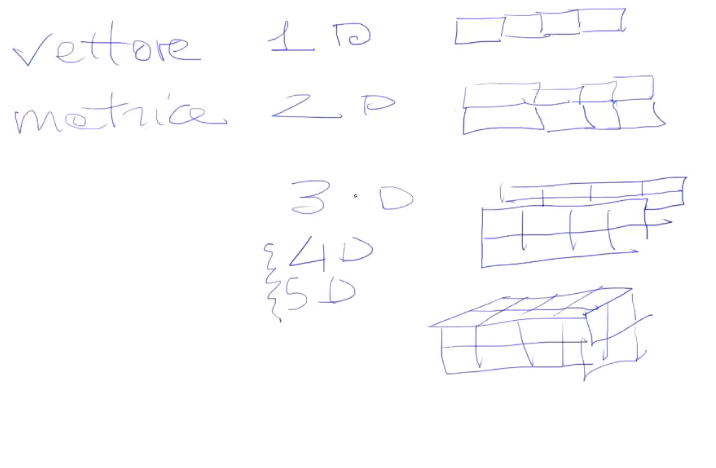 vettore 1 D
matrice 2 D
3 D
4 D
5 D